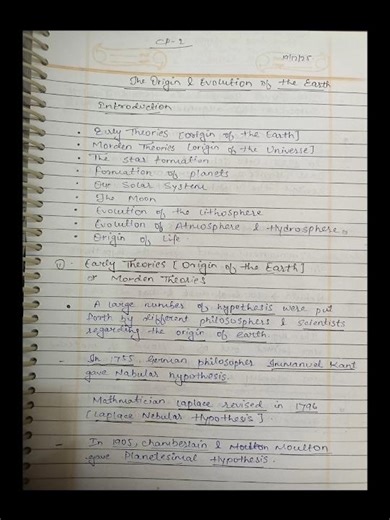 CP-2
The Origin & Evolution of the Earth
Introduction
• Early Theories [origin of the Earth]
• Morden Theories [origin of the Universe]
• The star formation
• Formation of planets
• Our Solar System
• The Moon
• Evolution of the Lithosphere
• Evolution of Atmosphere & Hydrosphere
• Origin of Life.
① Early Theories [Origin of the Earth]
& Morden Theories
• A large number of hypothesis were put
forth by different philosophers & scientists
regarding the origin of earth.
- In 1755 German philosopher Immanuel Kant
gave Nabular hypothesis.
Mathmatician Laplace revised in 1796
[Laplace Nebular Hypothesis].
- In 1905, Chamberlain & Moulton
gave Planetesimal Hypothesis.